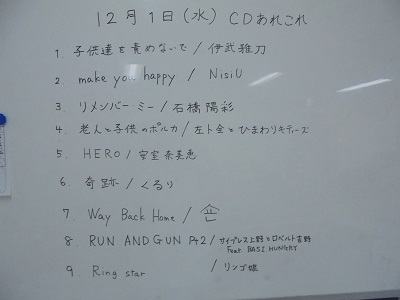 12月1日(水) CDあれこれ
1. 子供達を責めないで / 伊武雅刀
2. make you happy / NisiU
3. リメンバー・ミー / 石橋陽彩
4. 老人と子供のポルカ / 左卜全とひまわりキティーズ
5. HERO / 安室奈美恵
6. 奇跡 / くるり
7. Way Back Home /
8. RUN AND GUN pt2 / サイプレス上野とロベルト吉野
Feat. BASI HUNGRY
9. Ring star / リンゴ娘